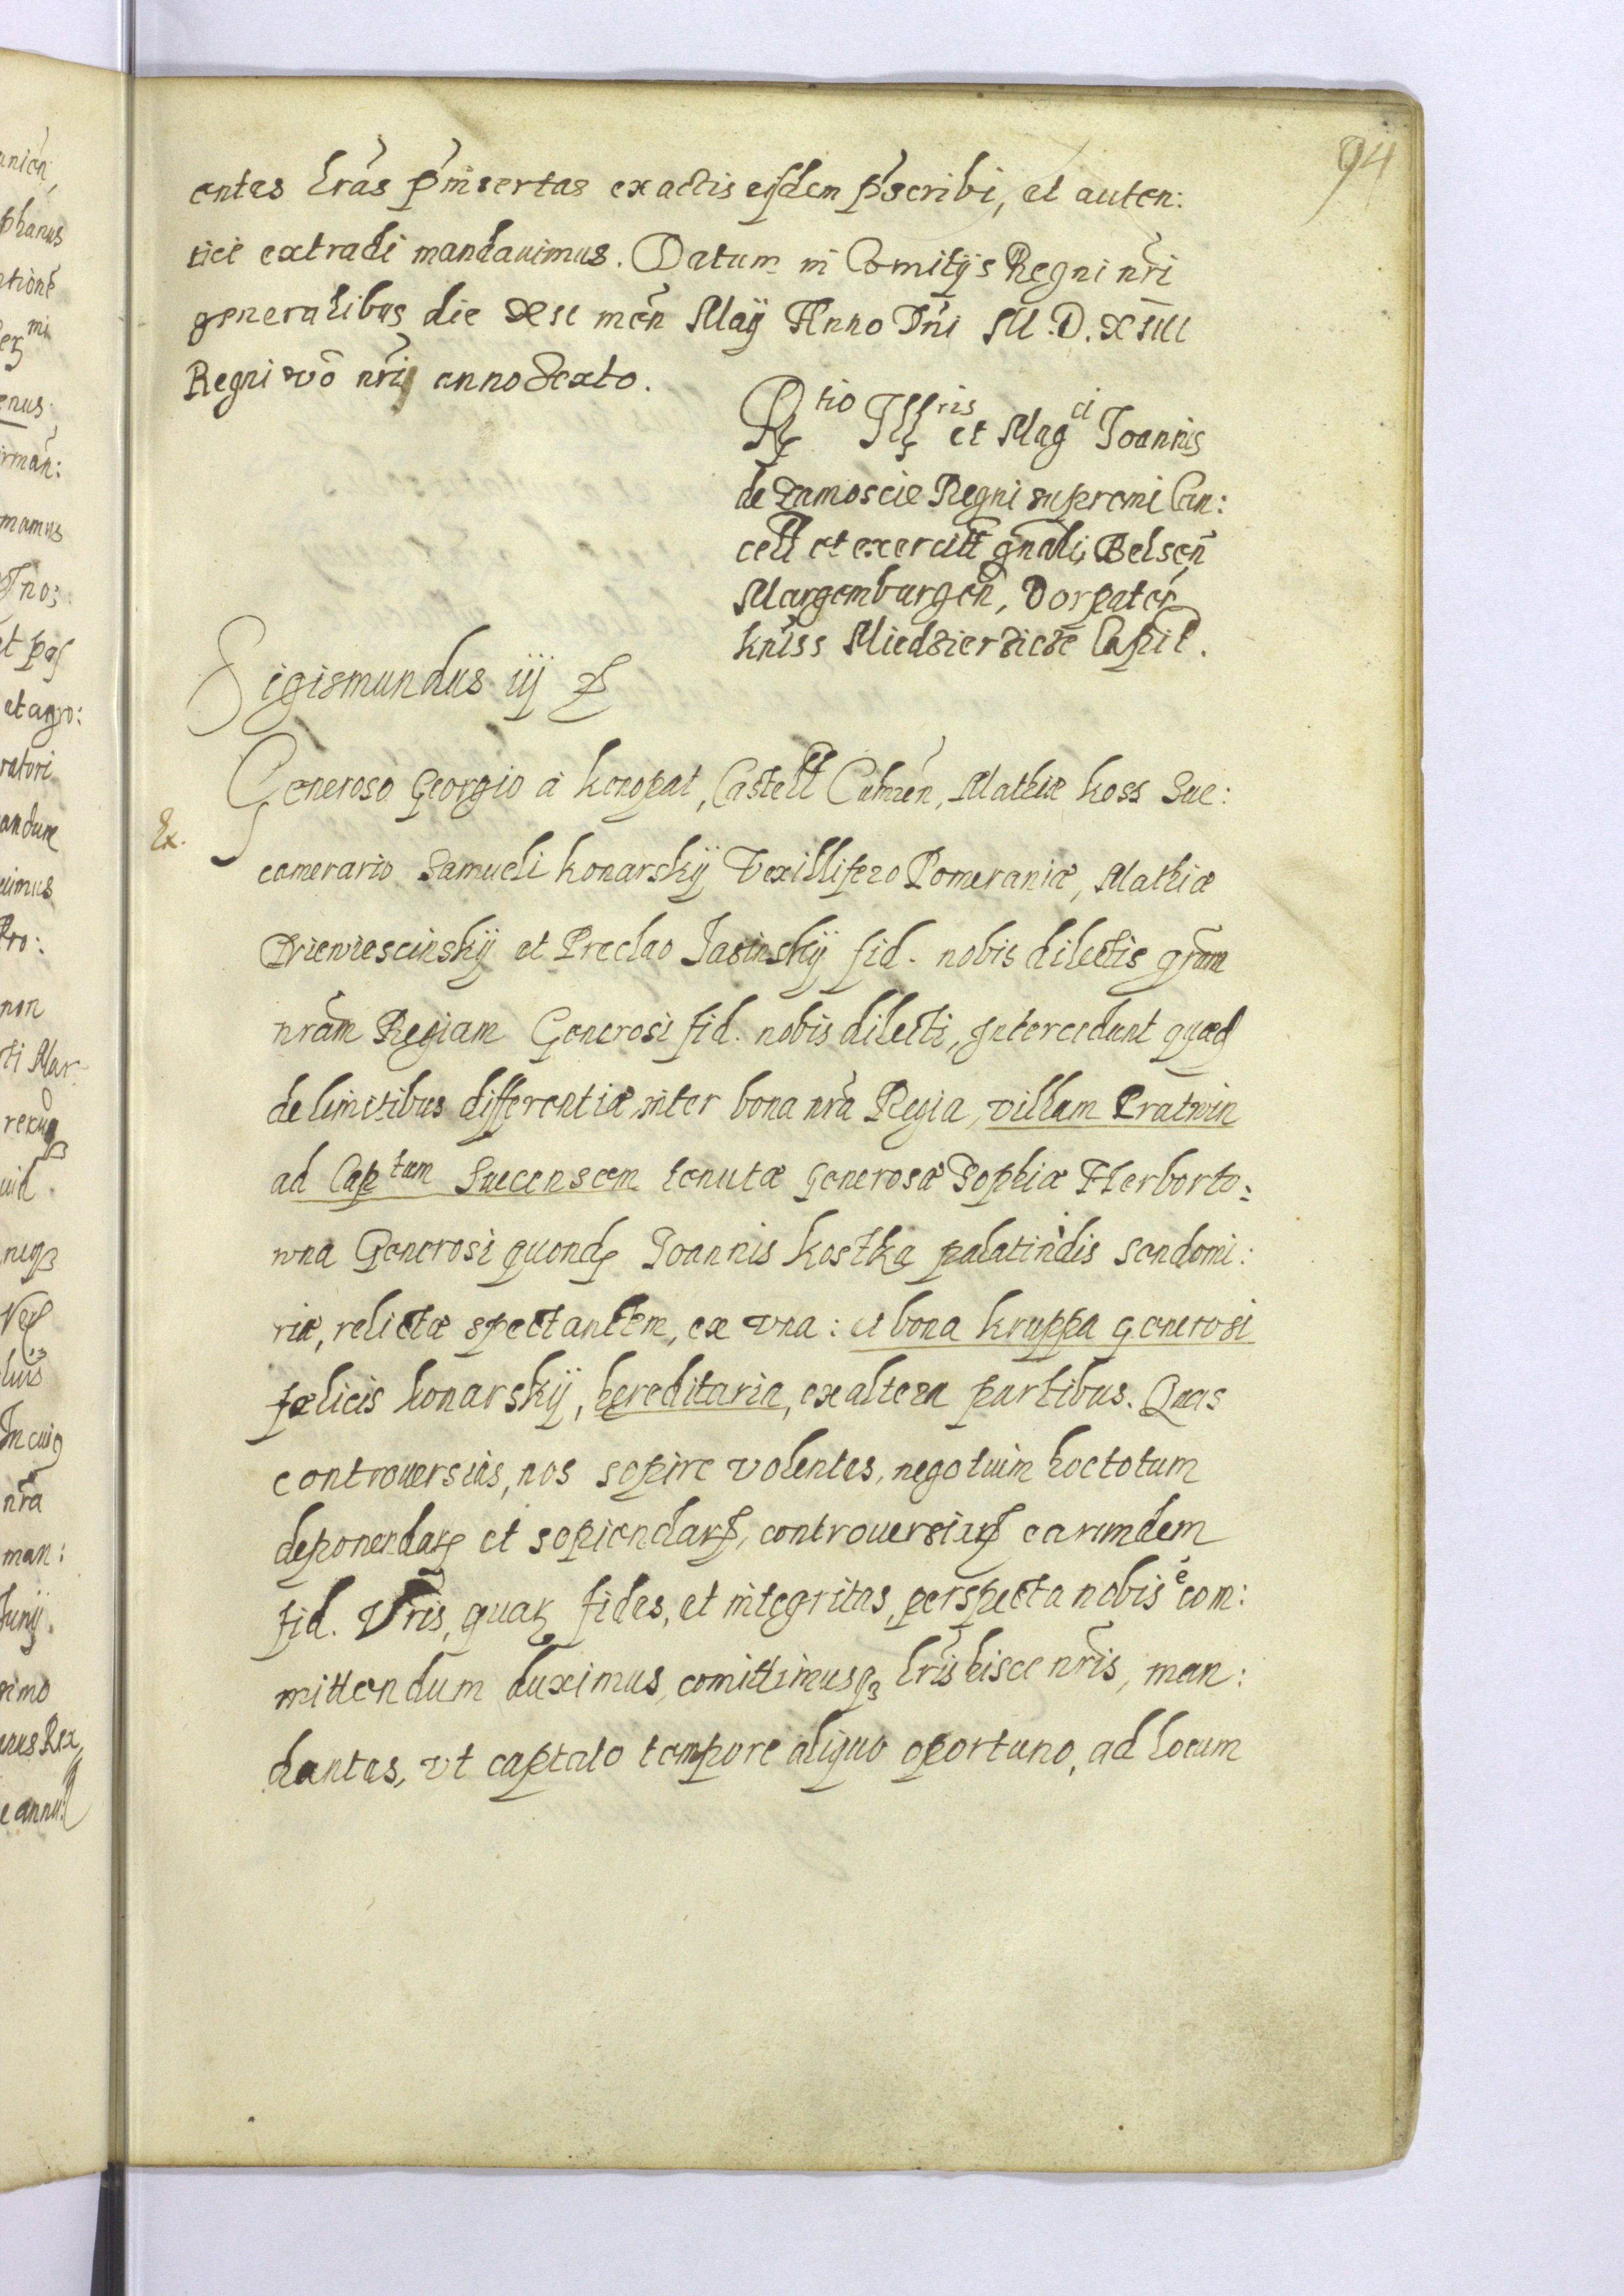 94
entes lras p̄insertas ex actis eisdem p̄scribi, et auten:
tice extradi mandauimus. Datum in Comitijs Regni nr̄i
generalibus die men̄ Maij Anno Dn̄i M.D.
Regni vō nr̄i anno Sexto.
Rtio Illris et Magci Joannis
de Zamoscie Regni supremi Can:
cell et exercitt gn̄alis, Belsen̄
Margemburgen̄, Dorpaten̄
kniss Miedzierziczē Capit.
Sigismundus iij
Generoso Georgio à konopat, Castell Culmen̄, Mathiæ koss Suc:
Ex.
camerario Samueli konarskij Vexillifero Pomeraniæ, Mathiæ
Niewiescinskij et Preclao Jasinskij fid. nobis dilectis grām
nrām Regiam Generosi fid. nobis dilecti, Intercedunt quæd
de limitibus differentiæ inter bona nrā Regia, villam Gratwin
ad Captam Suecensem tenutæ Generosæ Sophiæ Herborto:
wna Generosi quond Joannis kostka palatinidis sendomi:
riæ, relictæ spectantem, ex vna: et bona kruppa generosi
fælicis konarskij, hereditaria, ex altera partibus. Quas
controuersias, nos sopire volentes, negotium hoc totum
deponendar et sopiendar, controuersiar earumdem
fid. Vris, quar fides, et integritas, perspecta nobis ē com:
mittendum duximus, comittimusq lris hisce nris, man:
dantes, vt captato tempore aliquo oportuno, ad locum